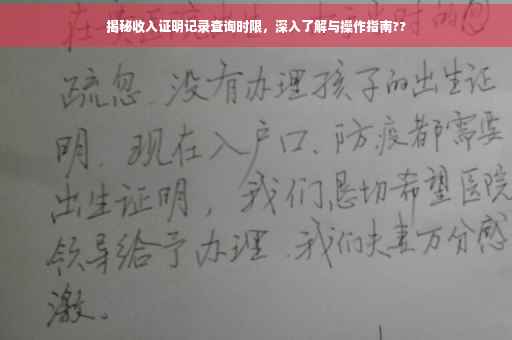 揭秘收入证明记录查询时限，深入了解与操作指南??
疏忽、没有办理孩子的出生证
明、现在入户口、防疫都需要
出生证明，我们恳切希望医院
领导给予办理、我们夫妻万分感
激。